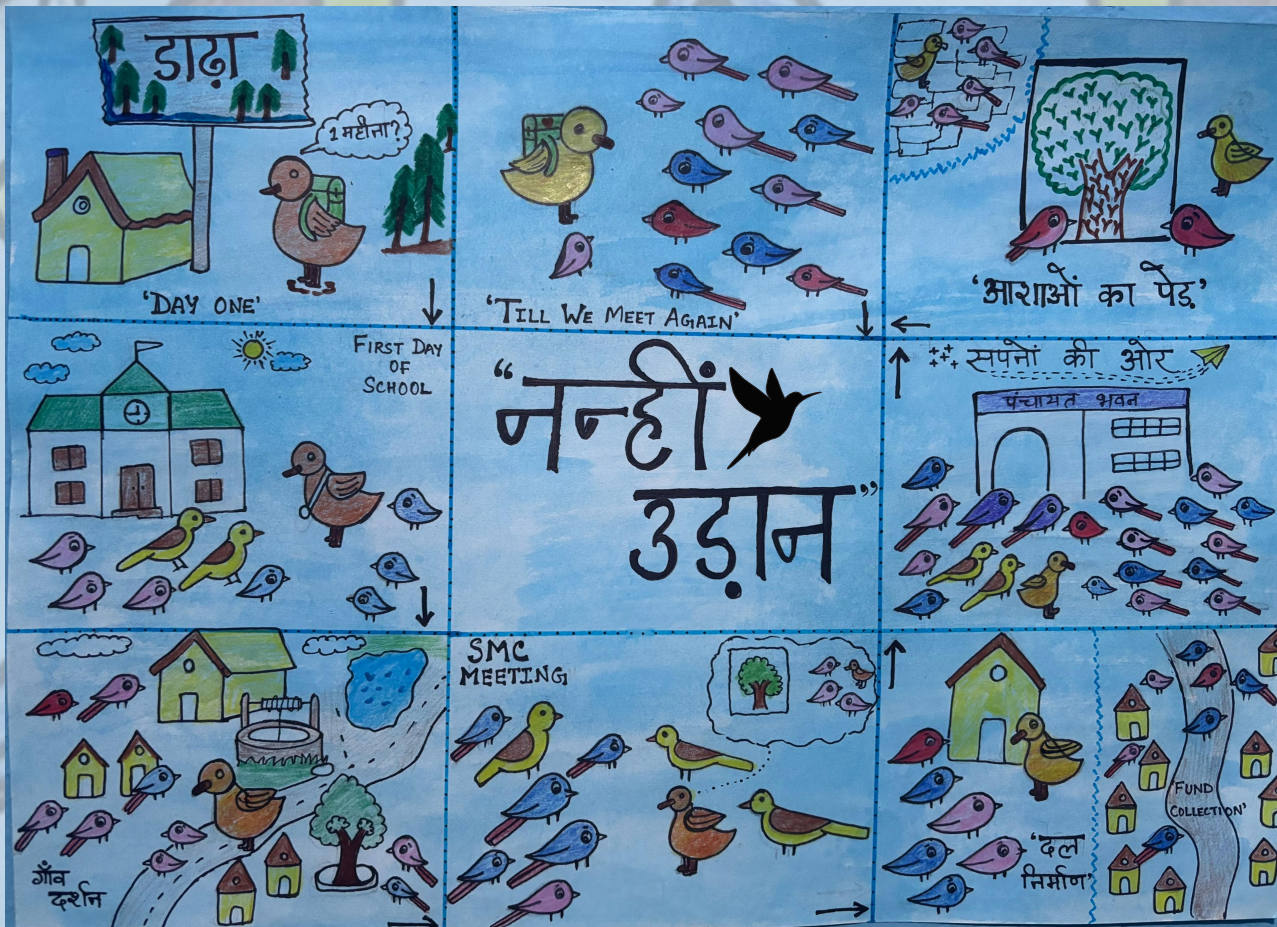 डाढ़ा
1 महीना?
'DAY ONE'
'TILL WE MEET AGAIN'
'आशाओं का पेड़'
FIRST DAY
OF
SCHOOL
"नन्हीं
उड़ान"
सपनों की ओर
पंचायत भवन
गाँव
दर्शन
SMC
MEETING
'दल
निर्माण'
'FUND
COLLECTION'